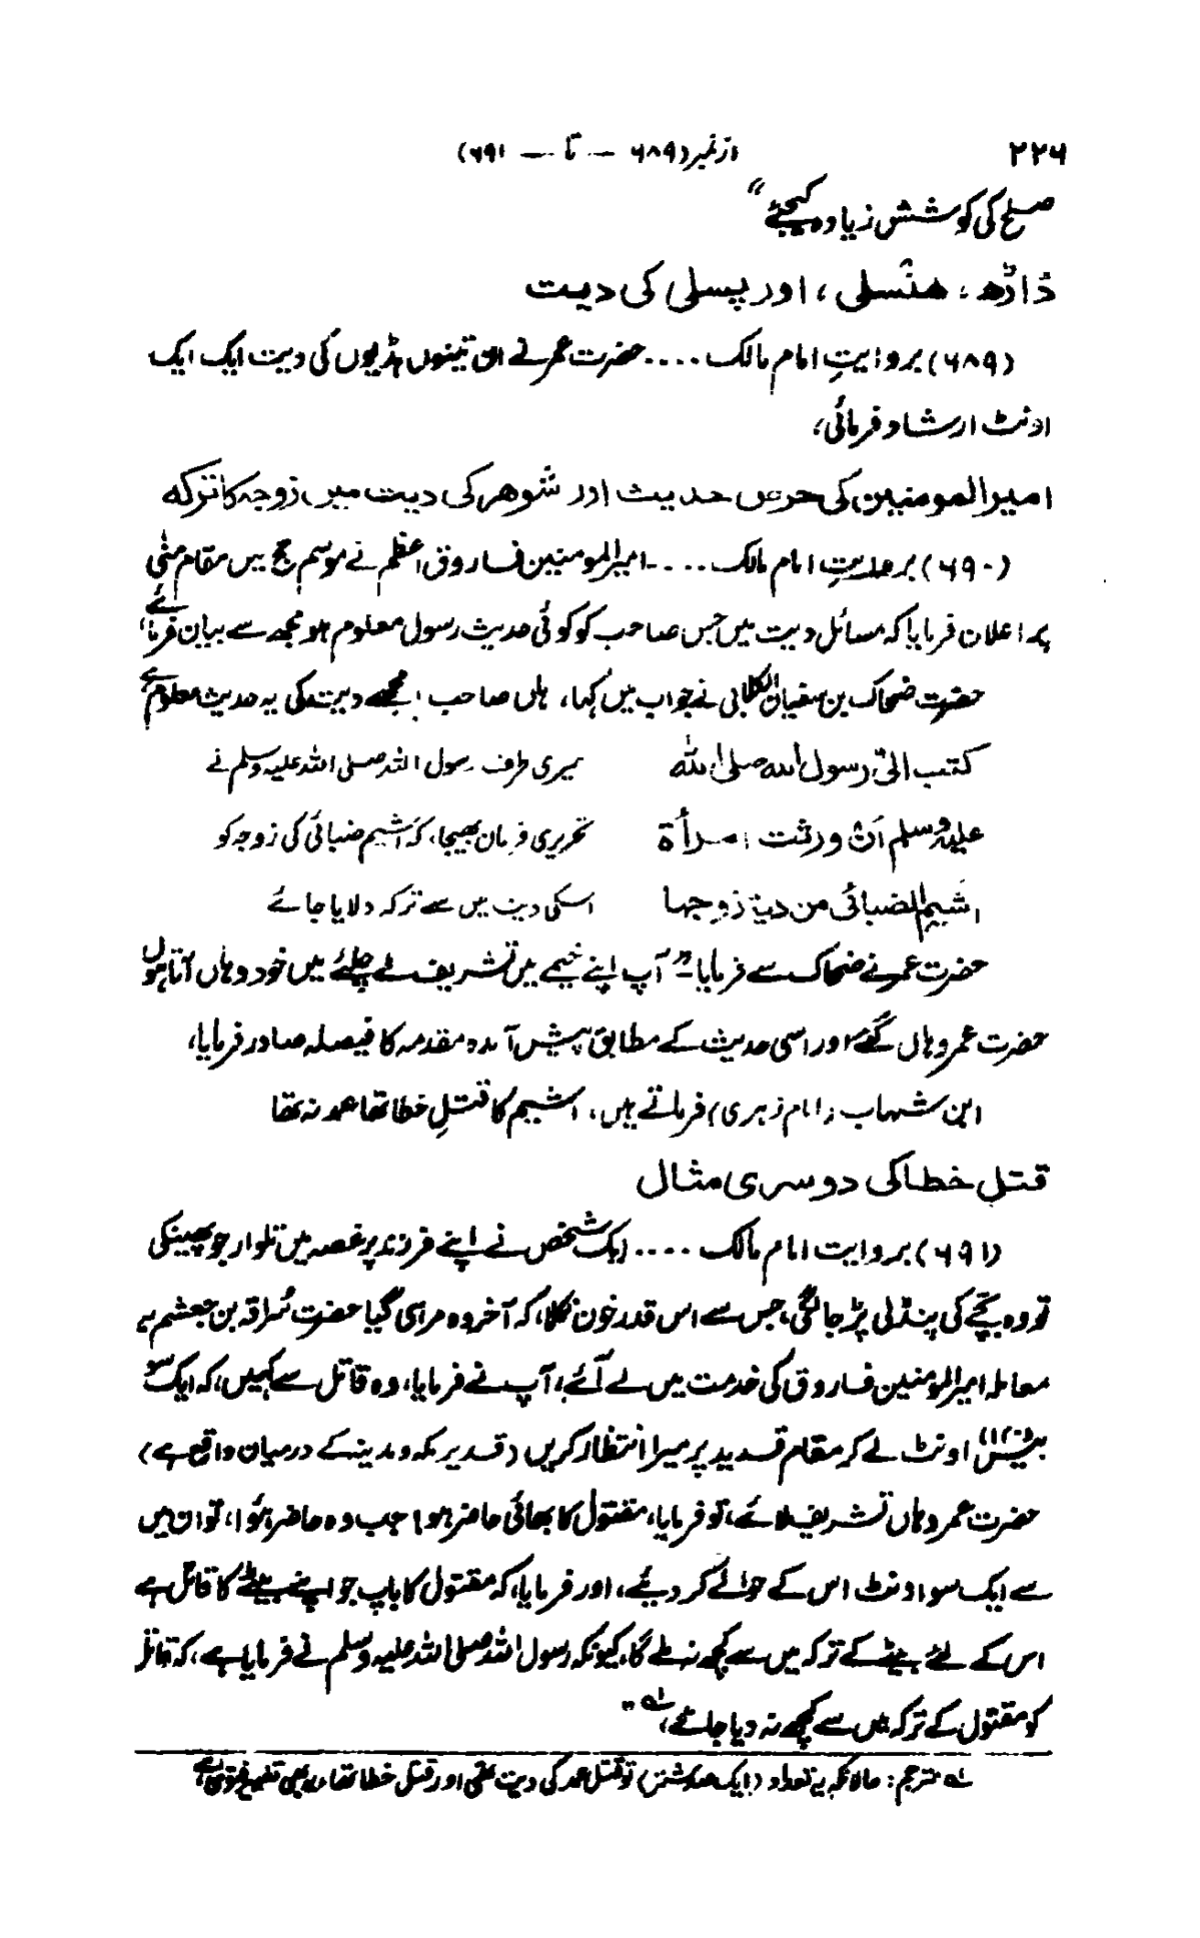 ۲۲۶ از نمبر (۶۸۹ — تا — ۶۹۱)
صلح کی کوشش زیادہ کیجئے"
ڈاڑھ، ھنسلی، اور پسلی کی دیت
(۶۸۹) بروایتِ امام مالک .... حضرت عمر نے ان تینوں ہڈیوں کی دیت ایک ایک
اونٹ ارشاد فرمائی،
امیرالمومنین کی حرص حدیث اور شوھر کی دیت میں زوجہ کا ترکہ
(۶۹۰) بروایتِ امام مالک .... امیرالمومنین فاروق اعظم نے موسم حج میں مقام منٰی
پر اعلان فرمایا کہ مسائل دیت میں جس صاحب کو کوئی حدیث رسول معلوم ہو مجھ سے بیان فرمائے
حضرت ضحاک بن سفیان الکلابی نے جواب میں کہا، ہاں صاحب! مجھے دیت کی یہ حدیث معلوم ہے
کتب الیّ رسول الله صلی الله میری طرف رسول اللہ صلی اللہ علیہ وسلم نے
علیہ وسلم اَنْ ورثت امرأۃ تحریری فرمان بھیجا، کہ اشیم ضبائی کی زوجہ کو
اشیم الضبائی من دیۃ زوجہا اسکی دیت میں سے ترکہ دلایا جائے
حضرت عمر نے ضحاک سے فرمایا "آپ اپنے خیمے میں تشریف لے چلئے میں خود وہاں آتا ہوں
حضرت عمر وہاں گئے اور اسی حدیث کے مطابق پیش آمدہ مقدمہ کا فیصلہ صادر فرمایا،
ابن شہاب (امام زہری) فرماتے ہیں، اشیم کا قتلِ خطا تھا عمد نہ تھا
قتل خطا کی دوسری مثال
(۶۹۱) بروایت امام مالک .... ایک شخص نے اپنے فرزند پر غصہ میں تلوار جو پھینکی
تو وہ بچے کی پنڈلی پر جا لگی، جس سے اس قدر خون نکلا، کہ آخر وہ مر ہی گیا حضرت سُراقہ بن جعشم یہ
معاملہ امیرالمومنین فاروق کی خدمت میں لے آئے، آپ نے فرمایا، وہ قاتل سے کہیں، کہ ایک سو
بیس (۱۲۰) اونٹ لے کر مقام قدید پر میرا انتظار کریں (قدیر مکہ و مدینہ کے درمیان واقع ہے)
حضرت عمر وہاں تشریف لائے، تو فرمایا، مقتول کا بھائی حاضر ہو! جب وہ حاضر ہوا، تو ان میں
سے ایک سو اونٹ اس کے حوالے کر دیئے، اور فرمایا، کہ مقتول کا باپ جو اپنے بیٹے کا قاتل ہے
اس کے لئے بیٹے کے ترکہ میں سے کچھ نہ ملے گا، کیونکہ رسول اللہ صلی اللہ علیہ وسلم نے فرمایا ہے، کہ قاتل
کو مقتول کے ترکہ میں سے کچھ نہ دیا جائے، لہ"
لہ مترجم: حالانکہ یہ تعداد (ایک صد شتر) تو قتل عمد کی دیت تھی اور قتل خطا تھا،